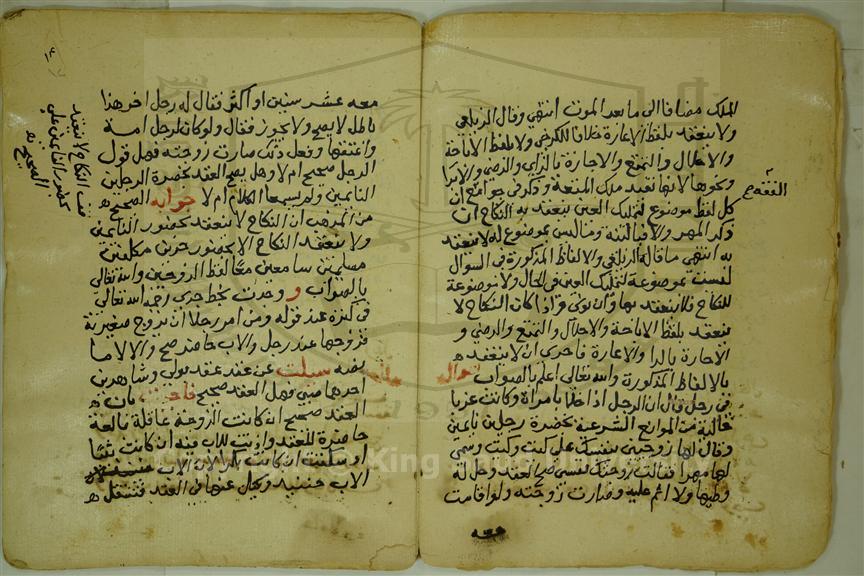 الملك مضافا الى ما بعد الموت انتهي وقال الزيلعي
ولا ينعقد بلفظ الاعارة خلافا للكرخي ولا بلفظ الاباحة
والاحلال والتمتع والاجازة بالزاي والرضي والابرا
ونحوها لانها لا تفيد ملك المتعة وذكر في جوامع ان
كل لفظ موضوع لتمليك العين ينعقد به النكاح ان
ذكر المهر والا فبالنية وما ليس بموضوع له لا ينعقد
به انتهي ما قاله الزيلعي والالفاظ المذكورة في السوال
ليست بموضوعة لتمليك العين في الحال ولا موضوعة
للنكاح فلا ينعقد بها وان نوي واذا كان النكاح لا
ينعقد بلفظ الاباحة والاحلال والتمتع والرضي و
الاجازة بالزا والاعارة فاحري ان لا ينعقد
بالالفاظ المذكورة والله تعالي اعلم بالصواب سوال
في رجل قال ان الرجل اذا خلا بامراة وكانت عزبا
خالية من الموانع الشرعية بحضرة رجلين نايمين
وقال لها زوجيني بنفسك علي كيت وكيت وسمي
لها مهرا فقالت زوجتك نفسي صح العقد وحل له
وطيها ولا اثم عليه وصارت زوجته ولو اقامت
معه
معه عشر سنين او اكثر فقال له رجل اخر هذا
باطل لا يصح ولا يجوز فقال ولو كان لرجل امة
واعتقها وفعل ذلك صارت زوجته فهل قول
الرجل صحيح ام لا وهل يصح العقد بحضرة الرجلين
النايمين ولم يسمعا الكلام ام لا جوابه الصحيح
من المذهب ان النكاح لا ينعقد بحضور النايمين
ولا ينعقد النكاح الا بحضور حرين مكلفين
مسلمين سامعين معا لفظ الزوجين والله تعالي
بالصواب و وجدت بخط جدي رحمه الله تعالي
في عند قوله ومن امر رجلا ان يزوج صغيرته
فزوجها عند رجل والاب حاضر صح والا لا ما
نصه سيلت عن عند عقد بولي وشاهدين
احدهما صبي فهل العقد صحيح فاجبت بان
العقد صحيح ان كانت الزوجة عاقلة بالغة
حاضرة للعقد واذنت للاب فيه ان كانت ثيبا
او سكتت ان كانت بكرا لان الاب
الاب حينيذ وكيل عنها في العقد فتنتقل
مت النكاح لا ينعقد
بحضور النايمين علي
الصحيح